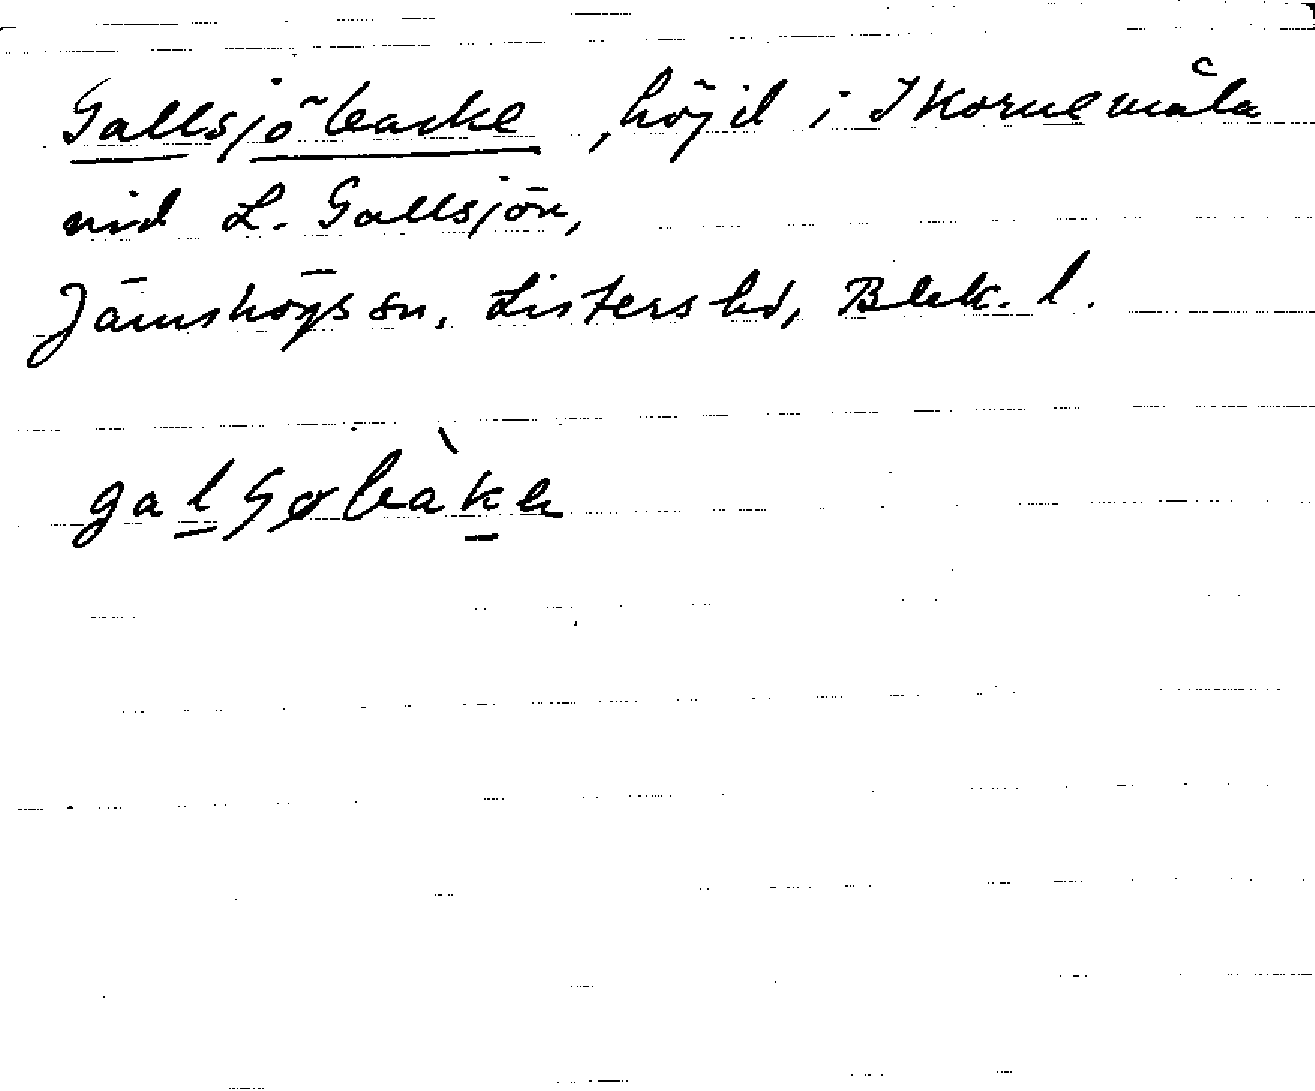 Gallsjöbacke, höjd i Ikornemåla
vid L. Gallsjön,
Jämshögs sn, Listers hd, Blek. l.
galʂøbàkə